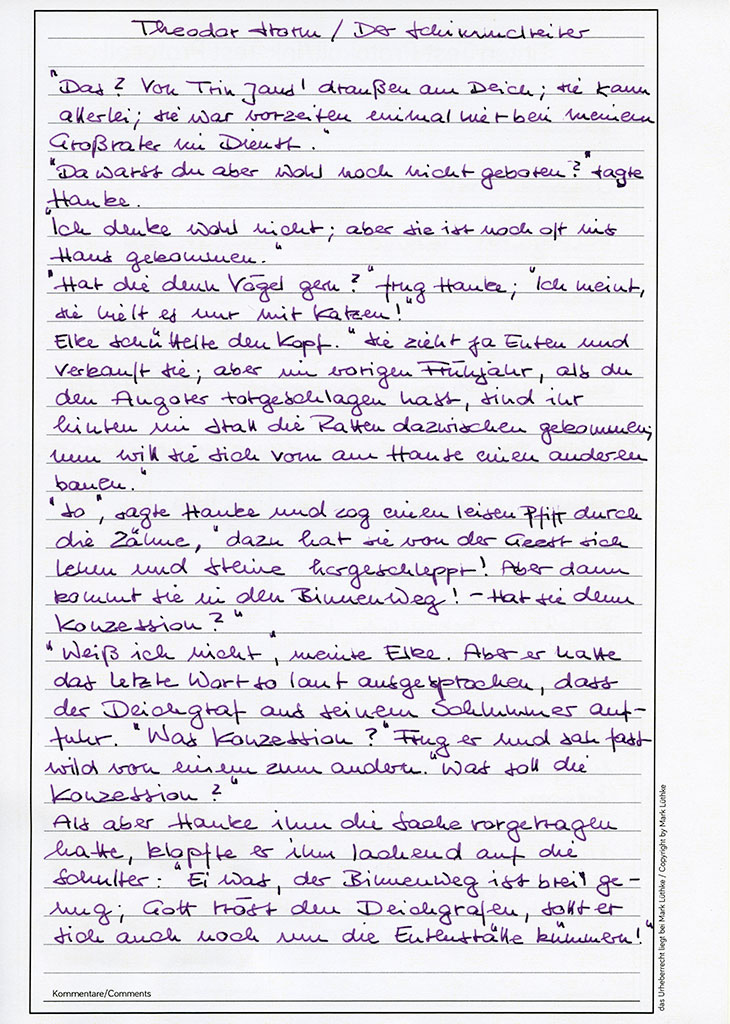 Theodor Storm / Der Schimmelreiter
"Das? Von Trin Jans! draußen am Deich; sie kann
allerlei; sie war vorzeiten einmal hier bei meinem
Großvater im Dienst."
"Da warst du aber wohl noch nicht geboren?" sagte
Hauke.
"Ich denke wohl nicht; aber sie ist noch oft ins
Haus gekommen."
"Hat die denn Vögel gern?" frug Hauke; "Ich meint,
sie hielt es nur mit Katzen!"
Elke schüttelte den Kopf. "Sie zieht ja Enten und
verkauft sie; aber im vorigen Frühjahr, als du
den Angorer totgeschlagen hast, sind ihr
hinten im Stall die Ratten dazwischen gekommen;
nun will sie sich vorn am Hause einen anderen
bauen."
"So", sagte Hauke und zog einen leisen Pfiff durch
die Zähne, "dazu hat sie von der Geest sich
Lehm und Steine hergeschleppt! Aber dann
kommt sie in den Binnenweg! – Hat sie denn
Konzession?"
"Weiß ich nicht", meinte Elke. Aber er hatte
das letzte Wort so laut ausgesprochen, dass
der Deichgraf aus seinem Schlummer auf-
fuhr. "Was Konzession?" Frug er und sah fast
wild von einem zum andern. "Was soll die
Konzession?"
Als aber Hauke ihm die Sache vorgetragen
hatte, klopfte er ihm lachend auf die
Schulter: "Ei was, der Binnenweg ist breit ge-
nug; Gott tröst den Deichgrafen, sollt er
sich auch noch um die Entenställe kümmern!"
Kommentare/Comments
das Urheberrecht liegt bei Mark Lüthke / Copyright by Mark Lüthke